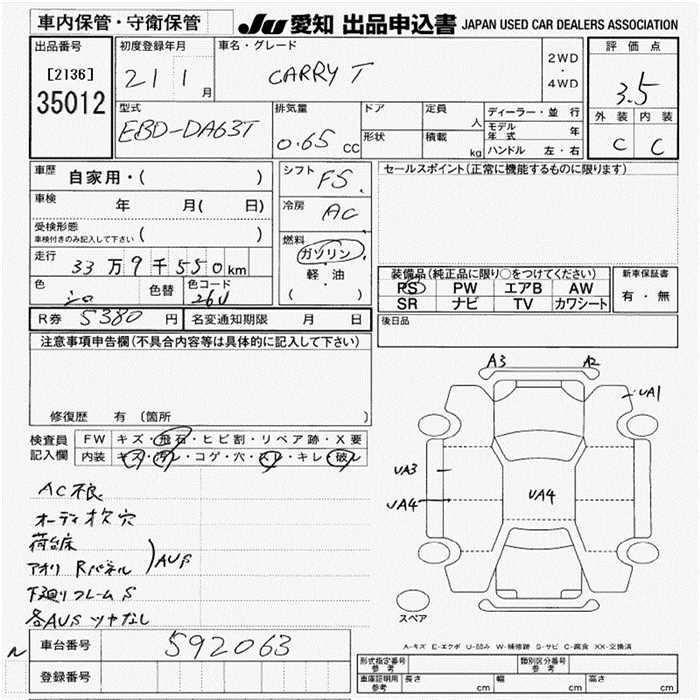 車内保管・守衛保管
JU 愛知 出品申込書 JAPAN USED CAR DEALERS ASSOCIATION
出品番号
[2136]
35012
初度登録年月
21 1 月
車名・グレード
CARRY T
2WD
・
4WD
評価点
3.5
外装 内装
C C
型式
EBD-DA63T
排気量
0.65 cc
ドア
形状
定員
人
積載
kg
ディーラー・並行
モデル年式 年
ハンドル 左・右
車歴 自家用・( )
車検 年 月( 日)
受検形態
車検付きのみ記入して下さい ( )
走行 33万9千550km
色 シロ 色替 色コード 26U
R券 5380 円 名変通知期限 月 日
シフト F5
冷房 AC
燃料
ガソリン
・
軽・油
( )
セールスポイント(正常に機能するものに限ります)
装備品(純正品に限り○をつけてください)
PS PW エアB AW
SR ナビ TV カワシート
新車保証書
有・無
後日品
注意事項申告欄(不具合内容等は具体的に記入して下さい)
修復歴 有 〔箇所 〕
検査員記入欄
FW キズ・飛石・ヒビ割・リペア跡・X要
内装 キズ・汚レ・コゲ・穴・スレ・キレ・破レ
AC不良
オーディオ欠穴
荷台床
アオリ Rパネル )AUS
下廻りフレームS
各AUS ツヤなし
A3 A2
UA1
UA3
UA4 UA4
スペア
A-キズ E-エクボ U-凹み W-補修跡 S-サビ C-腐食 XX-交換済
車台番号 592063
登録番号
形式指定番号 参考 類別区分番号 参考
車庫証明用 参考 長さ cm 幅 cm 高さ cm